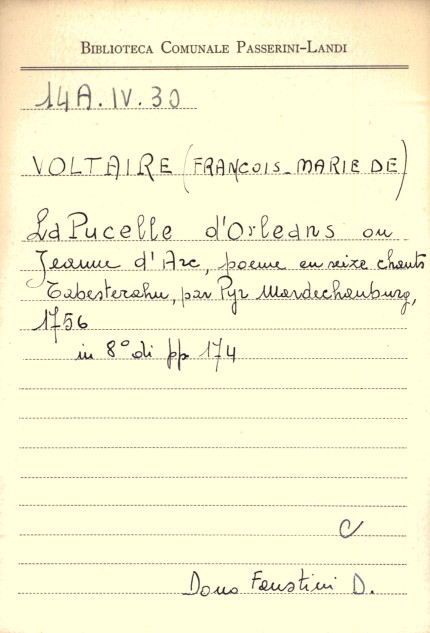 BIBLIOTECA COMUNALE PASSERINI-LANDI
14A.IV.30
VOLTAIRE (FRANÇOIS-MARIE DE)
La Pucelle d'Orleans ou
Jeanne d'Arc, poeme en seize chants
Tabesterahn, par Pyr Mardechanburg,
1756
in 8° di pp 174
C
Dono Faustini D.